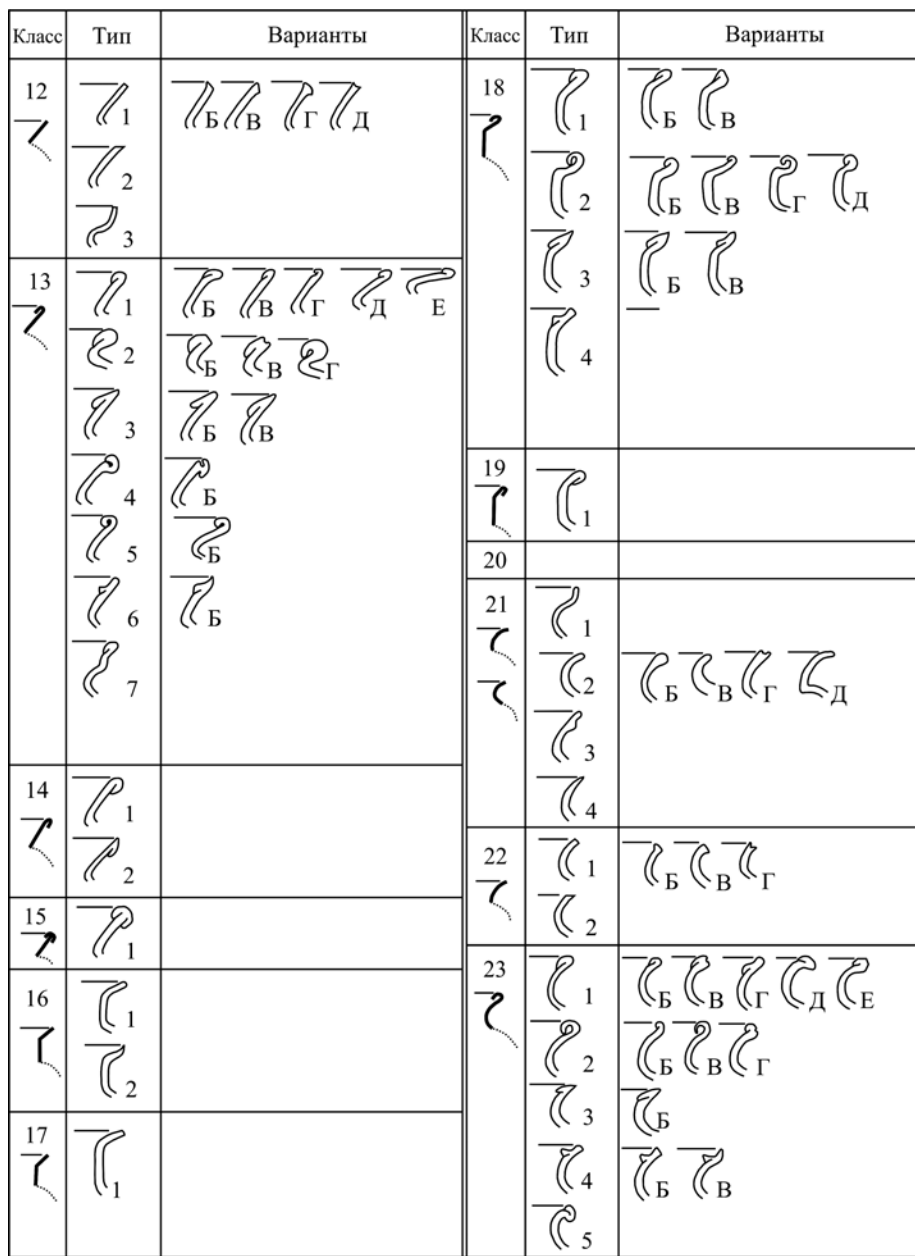 Класс Тип Варианты
12
1 Б В Г Д
2
3
13
1 Б В Г Д Е
2 Б В Г
3 Б В
4 Б
5 Б
6 Б
7
14
1
2
15
1
16
1
2
17
1
Класс Тип Варианты
18
1 Б В
2 Б В Г Д
3 Б В
4
19
1
20
21
1
2 Б В Г Д
3
4
22
1 Б В Г
2
23
1 Б В Г Д Е
2 Б В Г
3 Б
4 Б В
5